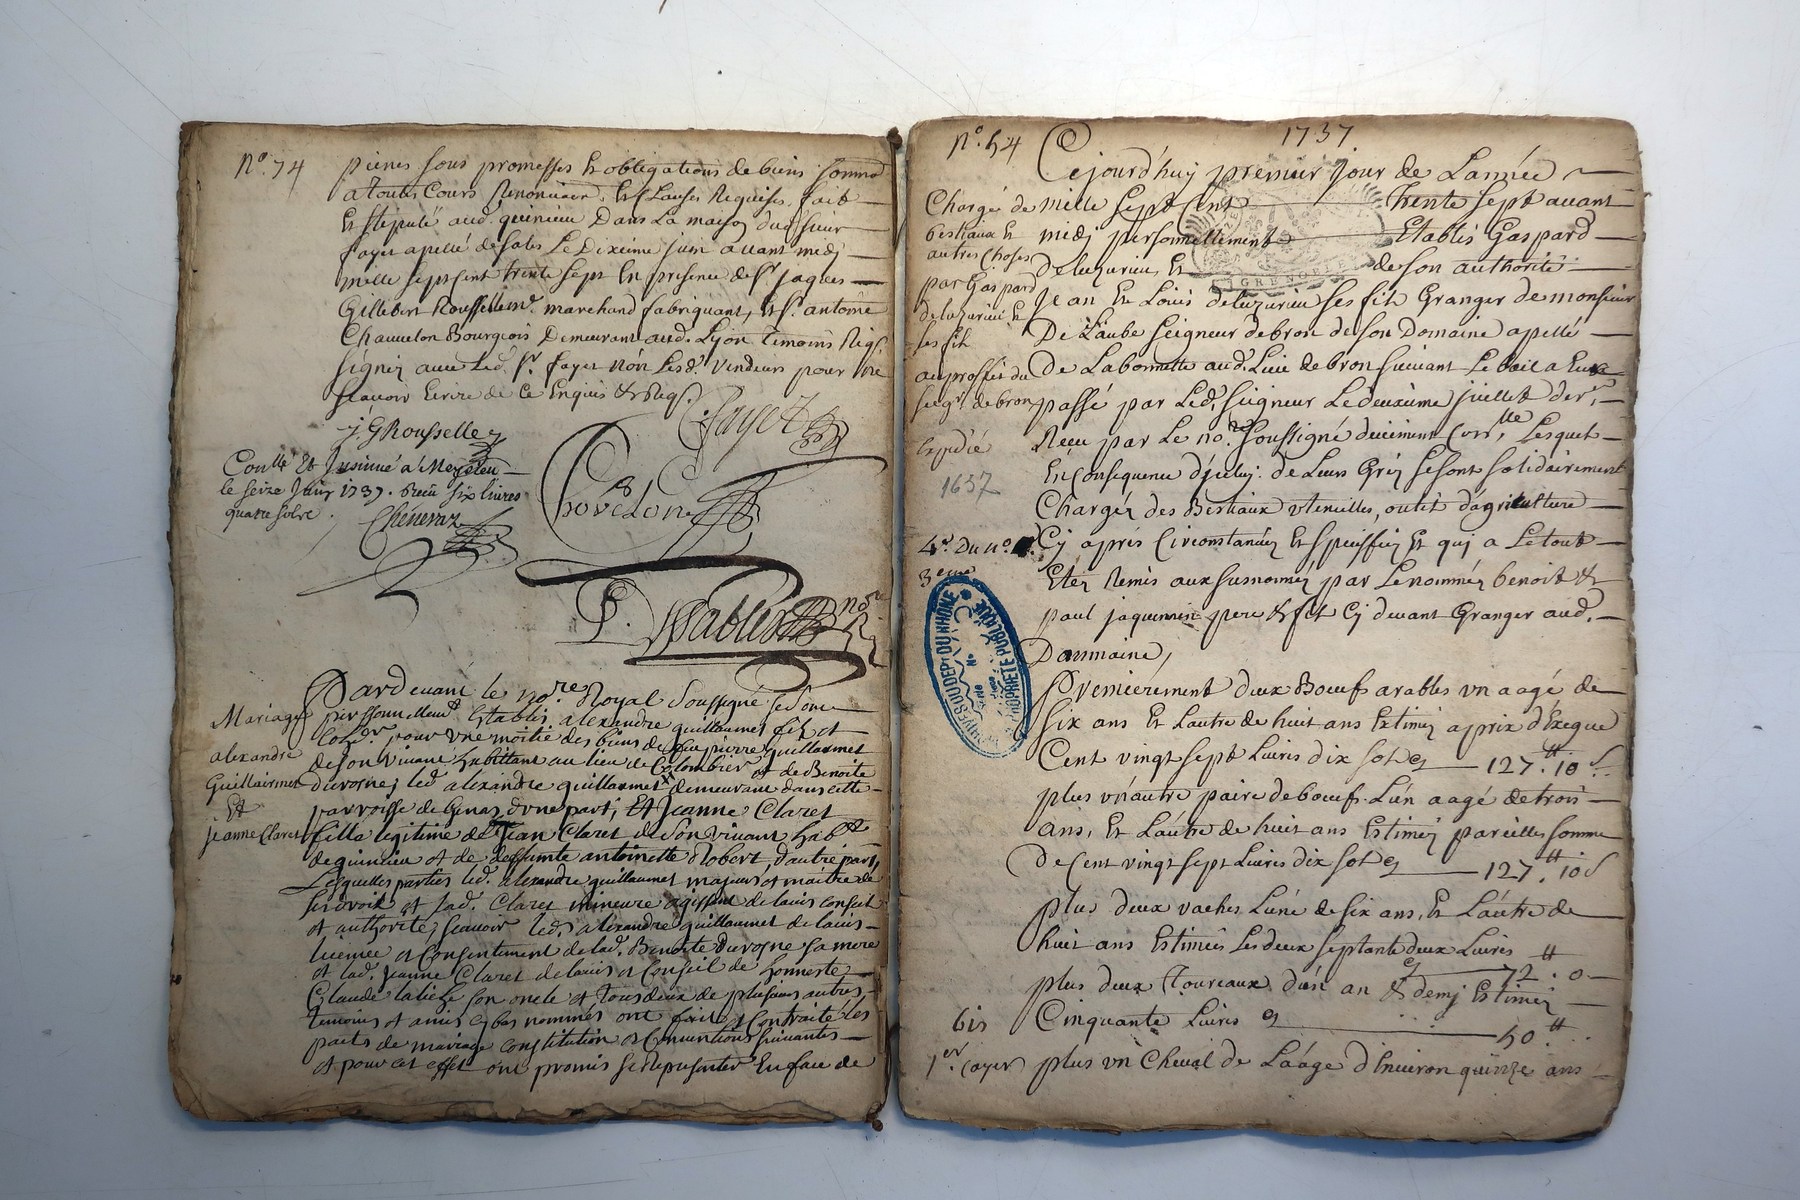 N.º 74
pienes sous promesses & obligations de biens soumis
a toutes Cours Renonciaon. & Clauses Requises. fait
Et stipulé aud. quincieu Dans La maison dud. sieur
fayet apellé desables Le Dixieme juin avant midi
mille sept cent trente sept En presence de Sr. jaques
Gillebert Rousselle md. marchand fabriquant, & Sr. antoine
Chauvelon Bourgeois Demeurant aud. Lyon Temoins Req.
signéz avec Led. Sr. fayet nón Lesd. vendeurs pour ne
sçavoir Ecrire de Ce Enquis & Reqs.
j. G Rousselle
Fayet
Conlle Et Insinué a Meyzieu
le seize Juin 1737. Receu six livres
quatre sols.
Cheneraz
Chovelon
P. Sables nore
Pardevant le nore Royal Soussigné se sont
personnellemt Establis alexandre guillaumet fils et
Cohr. pour une moitié des biens de feu pierre guillaumet
de son vivant habittant au lieu de Colombier et de Benoite
duvosne; led. alexandre guillaumet demeurant dans cette
parroisse de Genas d'une part; Et Jeanne Claret
fille legitime de Jean Claret de son vivant habt.
de quincieu et de deffunte antoinette Robert, d'autre part,
Lesquelles parties led. alexandre guillaumet majeur et maitre de
ses droits et lad. Claret mineure agissant de lavis conseil
et authorité, scavoir led. alexandre guillaumet de lavis
licence et Consentement de lad. Benoite duvosne sa mere
et lad. Jeanne Claret de lavis et Conseil de honneste
Claude son oncle et tous deux de plusieurs autres
temoins et amis cy bas nommés ont fait et Contraité les
pacts de mariage constitution et Conventions suivantes
et pour cet effet ont promis se Representer En face de
Mariage
alexandre
Guillaumet
Et
jeanne Claret
N.º 54
1737
Cejourd'huy premier jour de Lannée
mille sept Cent Trente sept avant
midj personnellement Etablis Gaspard
Deluzurieu, Et de son authorité
Jean Et Loüis deluzurieu ses fils Granger de monsieur
De Laube seigneur de bron de son Domaine apellé
De Labonnette aud. Lieu de bron suivant Le bail a Eux
passé par Led. seigneur Le deuxieme juillet der.
Receu par Le nore. soussigné deüement Conlle. Lesquels
En Consequence d'jceluj. de Leurs Gréz se sont solidairement
Chargéz des Bestiaux utencilles, outils d'agriculture
Cj aprés Circonstanciéz Et speciffiéz Et quj a Le tout
Etéz Remis aux susnomméz par Le nomméz benoit &
paul jaquemin pere & fils Cj devant Granger aud.
Dommaine,
Premiérement deux Bœufs arables un aagé de
Six ans Et Lautre de huit ans Estiméz a prix d'Exegue
Cent vingt sept Livres dix sols Cj 127.ᵗᵗ 10 s.
plus un autre paire de bœufs. L'un aagé de trois
ans, Et L'autre de huit ans Estiméz pareilles somme
De Cent vingt sept Livres dix sols Cj 127.ᵗᵗ 10 s
plus deux vaches L'uné de six ans, Et L'autre de
huit ans Estimées Les deux septante deux Livres
Cj 72.ᵗᵗ 0
plus deux Toureaux d'un an & demj Estiméz
Cinquante Livres Cj 50.ᵗᵗ
plus un Cheval de L'aage d'Environ quinze ans
Chargé de
bestiaux Et
autres Choses
par Gaspard
deluzurieu &
ses fils
au proffit du
seigr. de bron
Expedié
1637
4e. Du no.
3eme
bis
1er. Cayer
GRENOBLE
ARCHIVES DU DEPT DU RHONE
PROPRIETE PUBLIQUE